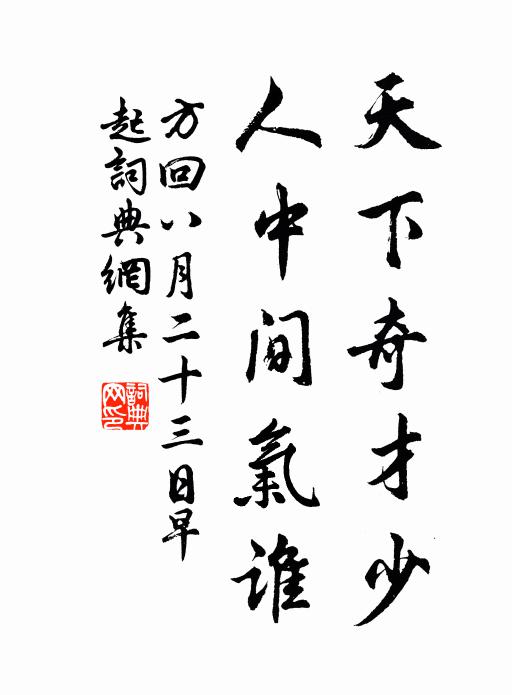 天下奇才少
人中间氣谁
方回八月二十三日早
起詞典網集
詞典网印